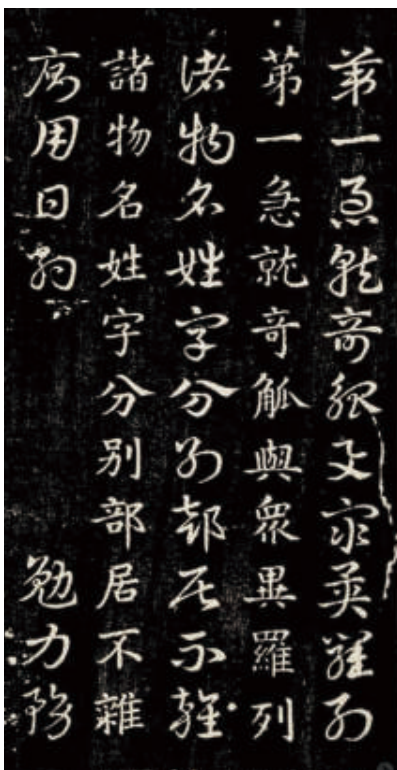 第一急就奇觚與衆異羅列
第一急就奇觚與衆異羅列
諸物名姓字分別部居不雜
諸物名姓字分別部居不雜
廁用日約 勉力務